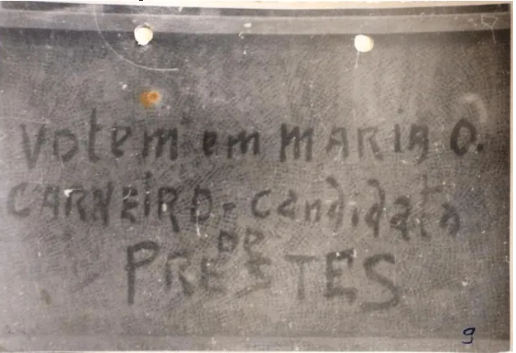 Votem em MARIA O.
CARNEIRO - candidata
DO
PRESTES
9